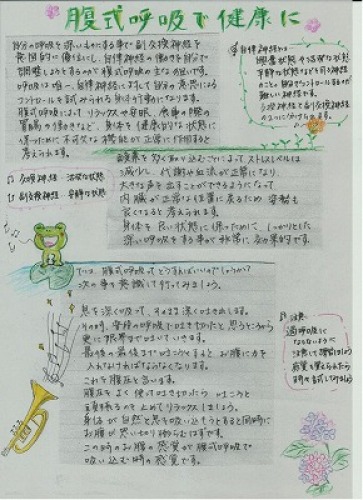 腹式呼吸で健康に
自分の呼吸を深いものにする事で副交感神経を
意図的に優位にし、自律神経の働きを自分で
調整しようとするのが腹式呼吸の主な目的です。
呼吸は唯一、自律神経に対して自分の意思による
コントロールを試みられる気がする行動になります。
腹式呼吸によってリラックスや安眠、
胃腸の働きなど、身体を健康的な状態に
保つために不可欠な機能が正常に作用すると
考えられます。
自律神経とは
興奮状態や活発な状態
安静な状態などを司る神経
のことで自分でコントロールするのが
難しい神経です。
交感神経と副交感神経
の2つに分けられます。
交感神経・活発な状態
副交感神経・安静な状態
酸素を多く取り込むことによってストレスレベルは
減少し、代謝や血流が正常になり、
大きな声を出すことができるようになって
内臓が正常な位置に戻るため姿勢も
良くなると考えられます。
身体を良い状態に保つために、しっかりとした
深い呼吸をする事が非常に効果的です。
では、腹式呼吸ってどうすればいいのでしょうか?
次の事を意識して行ってみましょう。
息を深く吸って、そのまま深く吐き出します。
その時、普段の呼吸で吐き切ったと思うところから
更に限界まで吐いていきます。
最後の最後まで吐こうとすると、お腹に力を
入れなければならなくなります。
これを腹圧と言います。
腹圧をよく使って吐き切ったら 吐こうと
頑張るのを止めてリラックスしましょう。
身体が自然と息を吸い込もうとすると同時に
お腹が思い切り膨らむはずです。
この時のお腹の感覚が腹式呼吸で
吸い込む時の感覚です。
注意
過呼吸に
ならないように
注意して練習しましょう
感覚を覚えられたら
時々試してみましょう